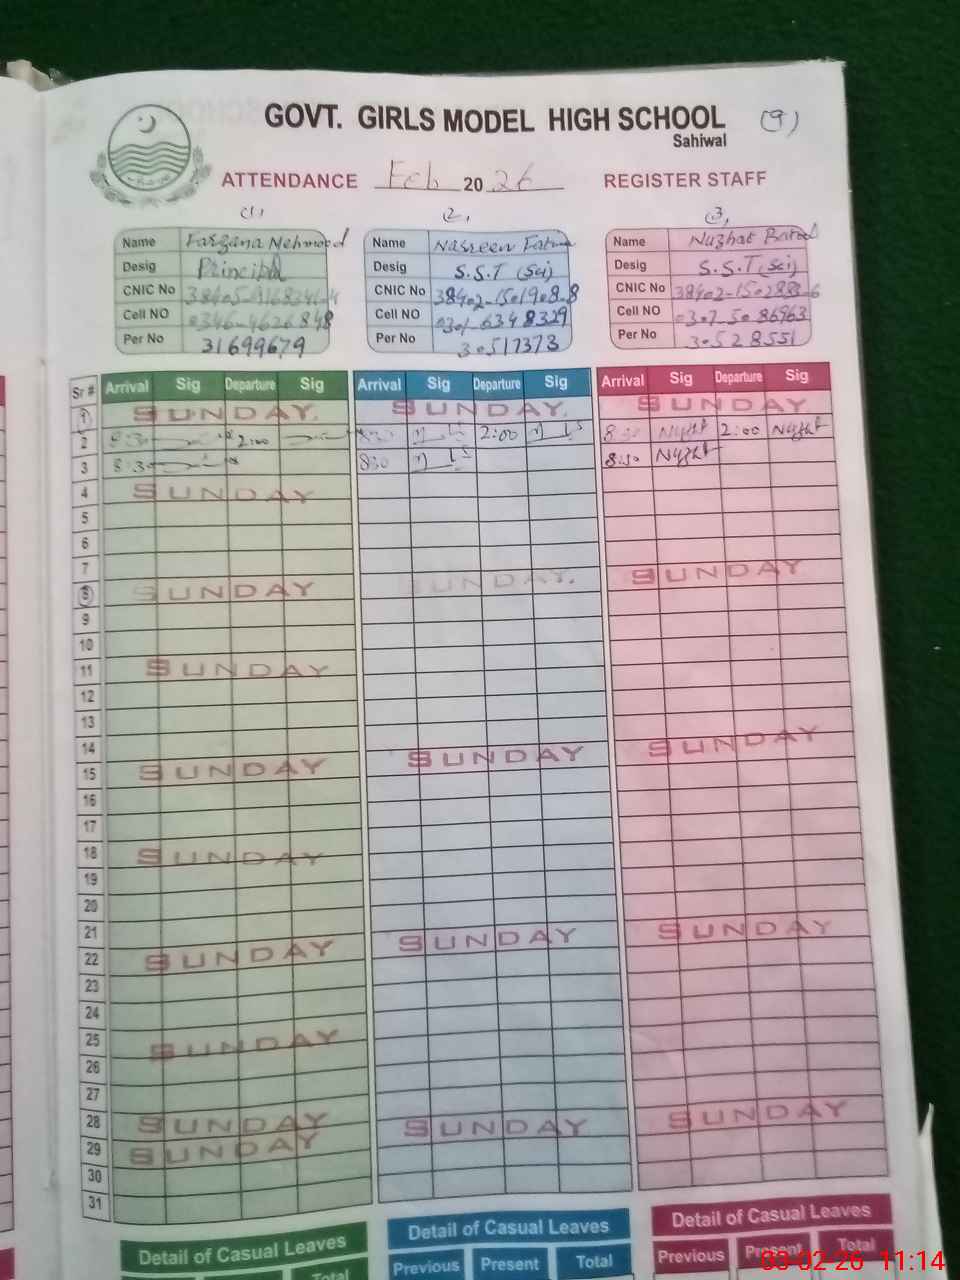 GOVT. GIRLS MODEL HIGH SCHOOL (9)
Sahiwal
ATTENDANCE Feb 20 26 REGISTER STAFF
(1) (2) (3)
Name Farzana Mehmood Name Nasreen Fatima Name Nuzhat Batool
Desig Principal Desig S.S.T (Sci) Desig S.S.T (Sci)
CNIC No CNIC No CNIC No
Cell NO 0346-4626848 Cell NO 0301-6348329 Cell NO 0307-5086963
Per No 31699679 Per No 30517373 Per No 30528551
Sr # Arrival Sig Departure Sig Arrival Sig Departure Sig Arrival Sig Departure Sig
1 SUNDAY. SUNDAY. SUNDAY
2 8:30 2:00 8:30 2:00 8:30 Nuzht 2:00 Nuzht
3 8:30 8:30 8:30 Nuzht
4 SUNDAY
5
6
7 SUNDAY
8 SUNDAY SUNDAY.
9
10
11 SUNDAY
12
13
14 SUNDAY SUNDAY
15 SUNDAY
16
17
18 SUNDAY
19
20
21 SUNDAY SUNDAY
22 SUNDAY
23
24
25 SUNDAY
26
27
28 SUNDAY SUNDAY SUNDAY
29 SUNDAY
30
31
Detail of Casual Leaves Detail of Casual Leaves Detail of Casual Leaves
Total Previous Present Total Previous Present Total
03-02-26 11:14